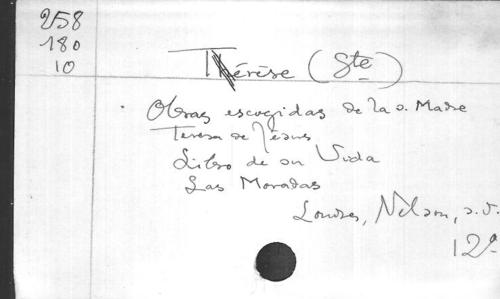 258
180
10
Thérèse (Ste)
Obras escogidas de la s. Madre
Teresa de Jésus
Libro de su Vida
Las Moradas
Londres, Nelson, s.d.
12º